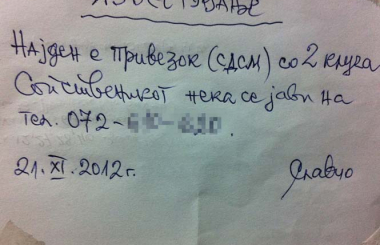 Најден е привезок (СДСМ) со 2 клуча
Сопственикот нека се јави на
тел. 072-
21. XI. 2012 г. Славчо